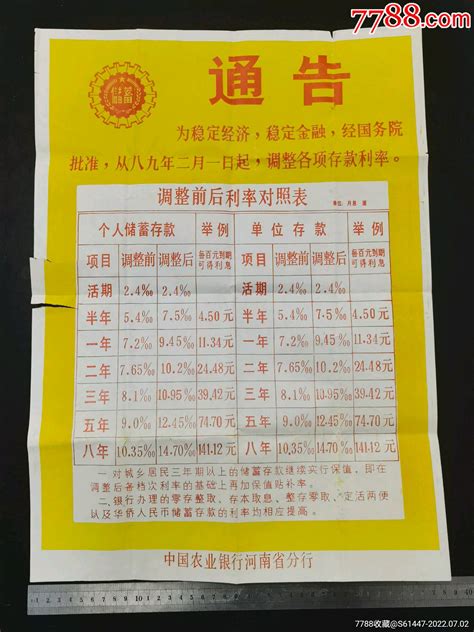 7788.com
通告
为稳定经济，稳定金融，经国务院
批准，从八九年二月一日起，调整各项存款利率。
调整前后利率对照表
个人储蓄存款 举例 单位存款 举例
项目 调整前 调整后 每百元到期可得利息 项目 调整前 调整后 每百元到期可得利息
活期 2.4‰ 2.4‰ 活期 2.4‰ 2.4‰
半年 5.4‰ 7.5‰ 4.50元 半年 5.4‰ 7.5‰ 4.50元
一年 7.2‰ 9.45‰ 11.34元 一年 7.2‰ 9.45‰ 11.34元
二年 7.65‰ 10.2‰ 24.48元 二年 7.65‰ 10.2‰ 24.48元
三年 8.1‰ 10.95‰ 39.42元 三年 8.1‰ 10.95‰ 39.42元
五年 9.0‰ 12.45‰ 74.70元 五年 9.0‰ 12.45‰ 74.70元
八年 10.35‰ 14.70‰ 141.12元 八年 10.35‰ 14.70‰ 141.12元
一．对城乡居民三年期以上的储蓄存款继续实行保值，即在
调整后各档次利率的基础上再加保值贴补率。
二．银行办理的零存整取、存本取息、整存零取、定活两便
以及华侨人民币储蓄存款的利率均相应提高。
中国农业银行河南省分行
7788收藏@S61447-2022.07.02